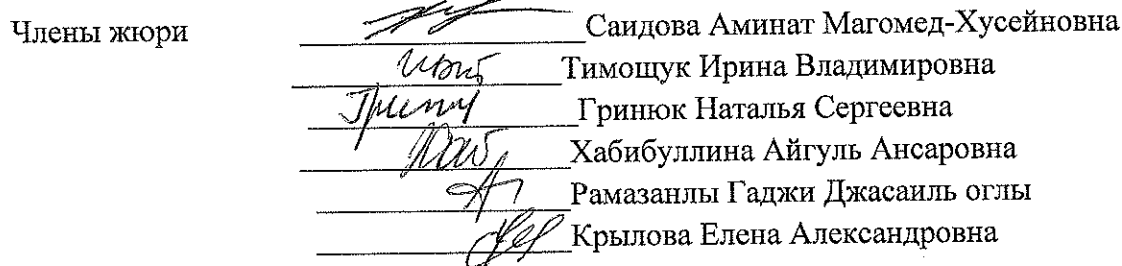 Члены жюри Саидова Аминат Магомед-Хусейновна
Тимощук Ирина Владимировна
Гринюк Наталья Сергеевна
Хабибуллина Айгуль Ансаровна
Рамазанлы Гаджи Джасаиль оглы
Крылова Елена Александровна